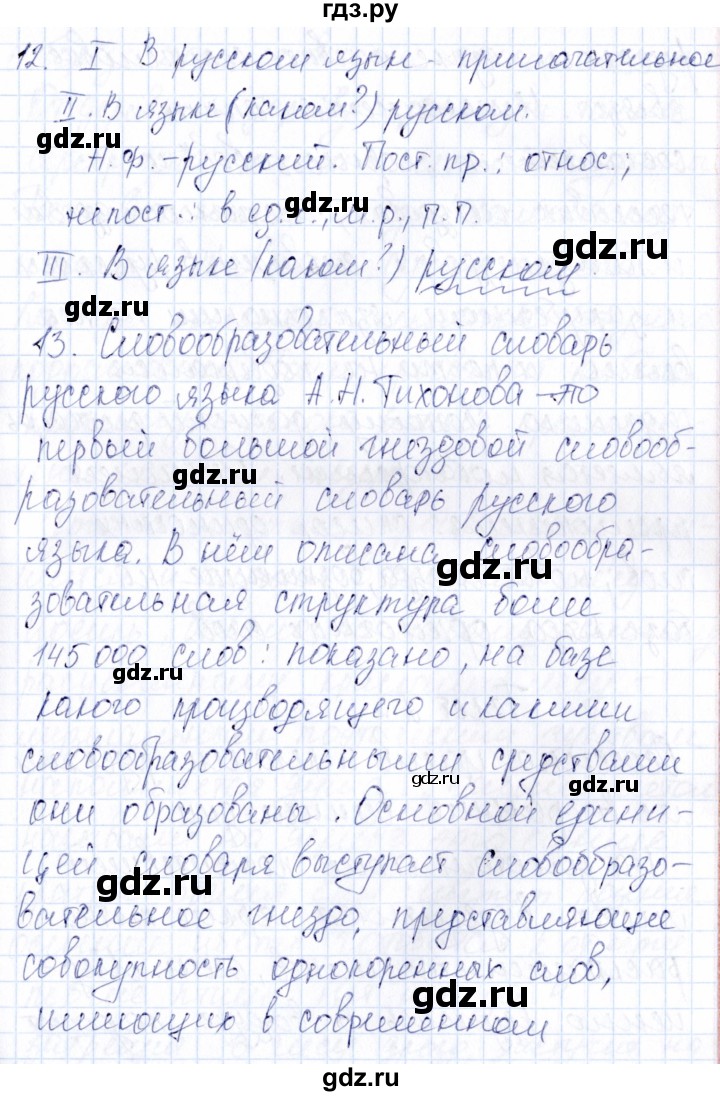 гдз.ру
12. I В русском языке - прилагательное
II. В языке (каком?) русском.
gdz.ru
gdz.ru
Н.ф. – русский. Пост. пр.: относ.;
gdz.ru
непост.: в ед.ч., м.р., П.П.
gdz.ru
III. В языке (каком?) русском.
gdz.ru
13. Словообразовательный словарь
gdz.ru
русского языка А.Н. Тихонова – это
первый большой гнездовой словооб-
gdz.ru
разовательный словарь русского
языка. В нём описана словообра-
gdz.ru
зовательная структура более
145 000 слов: показано, на базе
gdz.ru
какого производящего и какими
словообразовательными средствами
gdz.ru
gdz.ru
они образованы. Основной едини-
цей словаря выступает словообразо-
gdz.ru
вательное гнездо, представляющее
совокупность однокоренных слов,
gdz.ru
имеющую в современном
gdz.ru
gdz.ru